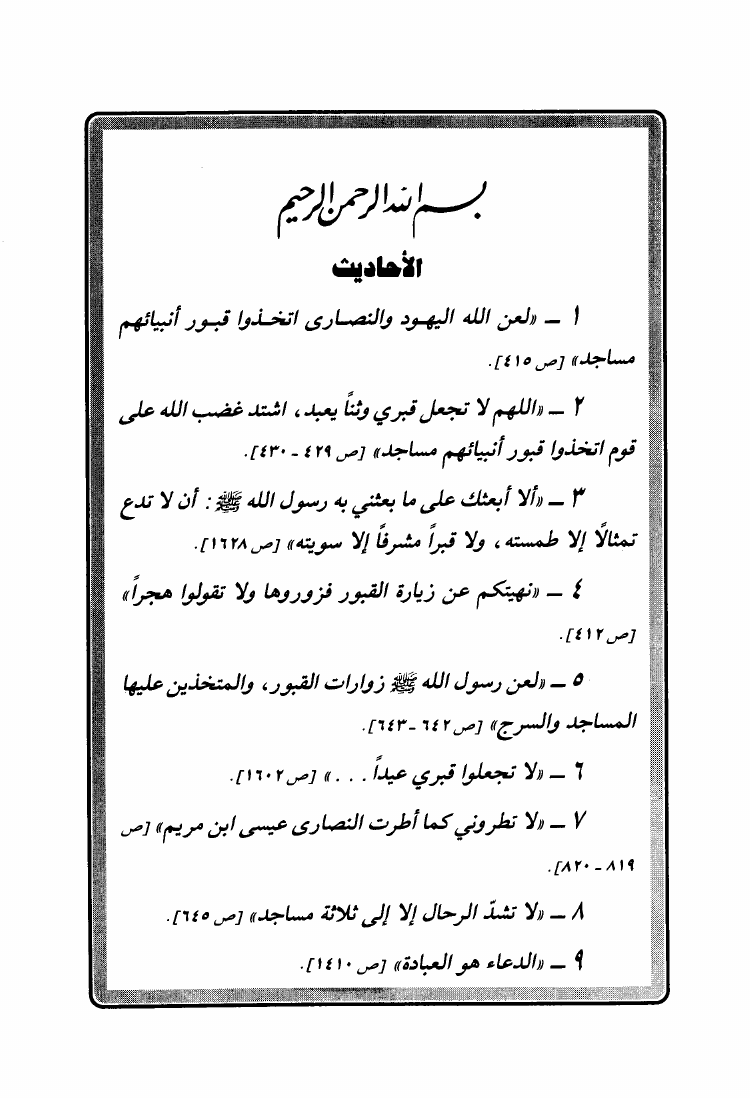 بسم الله الرحمن الرحيم
الأحاديث
١ ــ «لعن الله اليهود والنصارى اتخذوا قبور أنبيائهم
مساجد» [ص ٤١٥].
٢ ــ «اللهم لا تجعل قبري وثناً يعبد، اشتد غضب الله على
قوم اتخذوا قبور أنبيائهم مساجد» [ص ٤٢٩ ـ ٤٣٠].
٣ ــ «ألا أبعثك على ما بعثني به رسول الله ﷺ : أن لا تدع
تمثالًا إلا طمسته، ولا قبراً مشرفاً إلا سويته» [ص ١٦٢٨].
٤ ــ «نهيتكم عن زيارة القبور فزوروها ولا تقولوا هجراً»
[ص ٤١٢].
٥ ــ «لعن رسول الله ﷺ زوارات القبور، والمتخذين عليها
المساجد والسرج» [ص ٦٤٢ ـ ٦٤٣].
٦ ــ «لا تجعلوا قبري عيداً . . . » [ص ١٦٠٢].
٧ ــ «لا تطروني كما أطرت النصارى عيسى ابن مريم» [ص
٨١٩ ـ ٨٢٠].
٨ ــ «لا تشدّ الرحال إلا إلى ثلاثة مساجد» [ص ٦٤٥].
٩ ــ «الدعاء هو العبادة» [ص ١٤١٠].